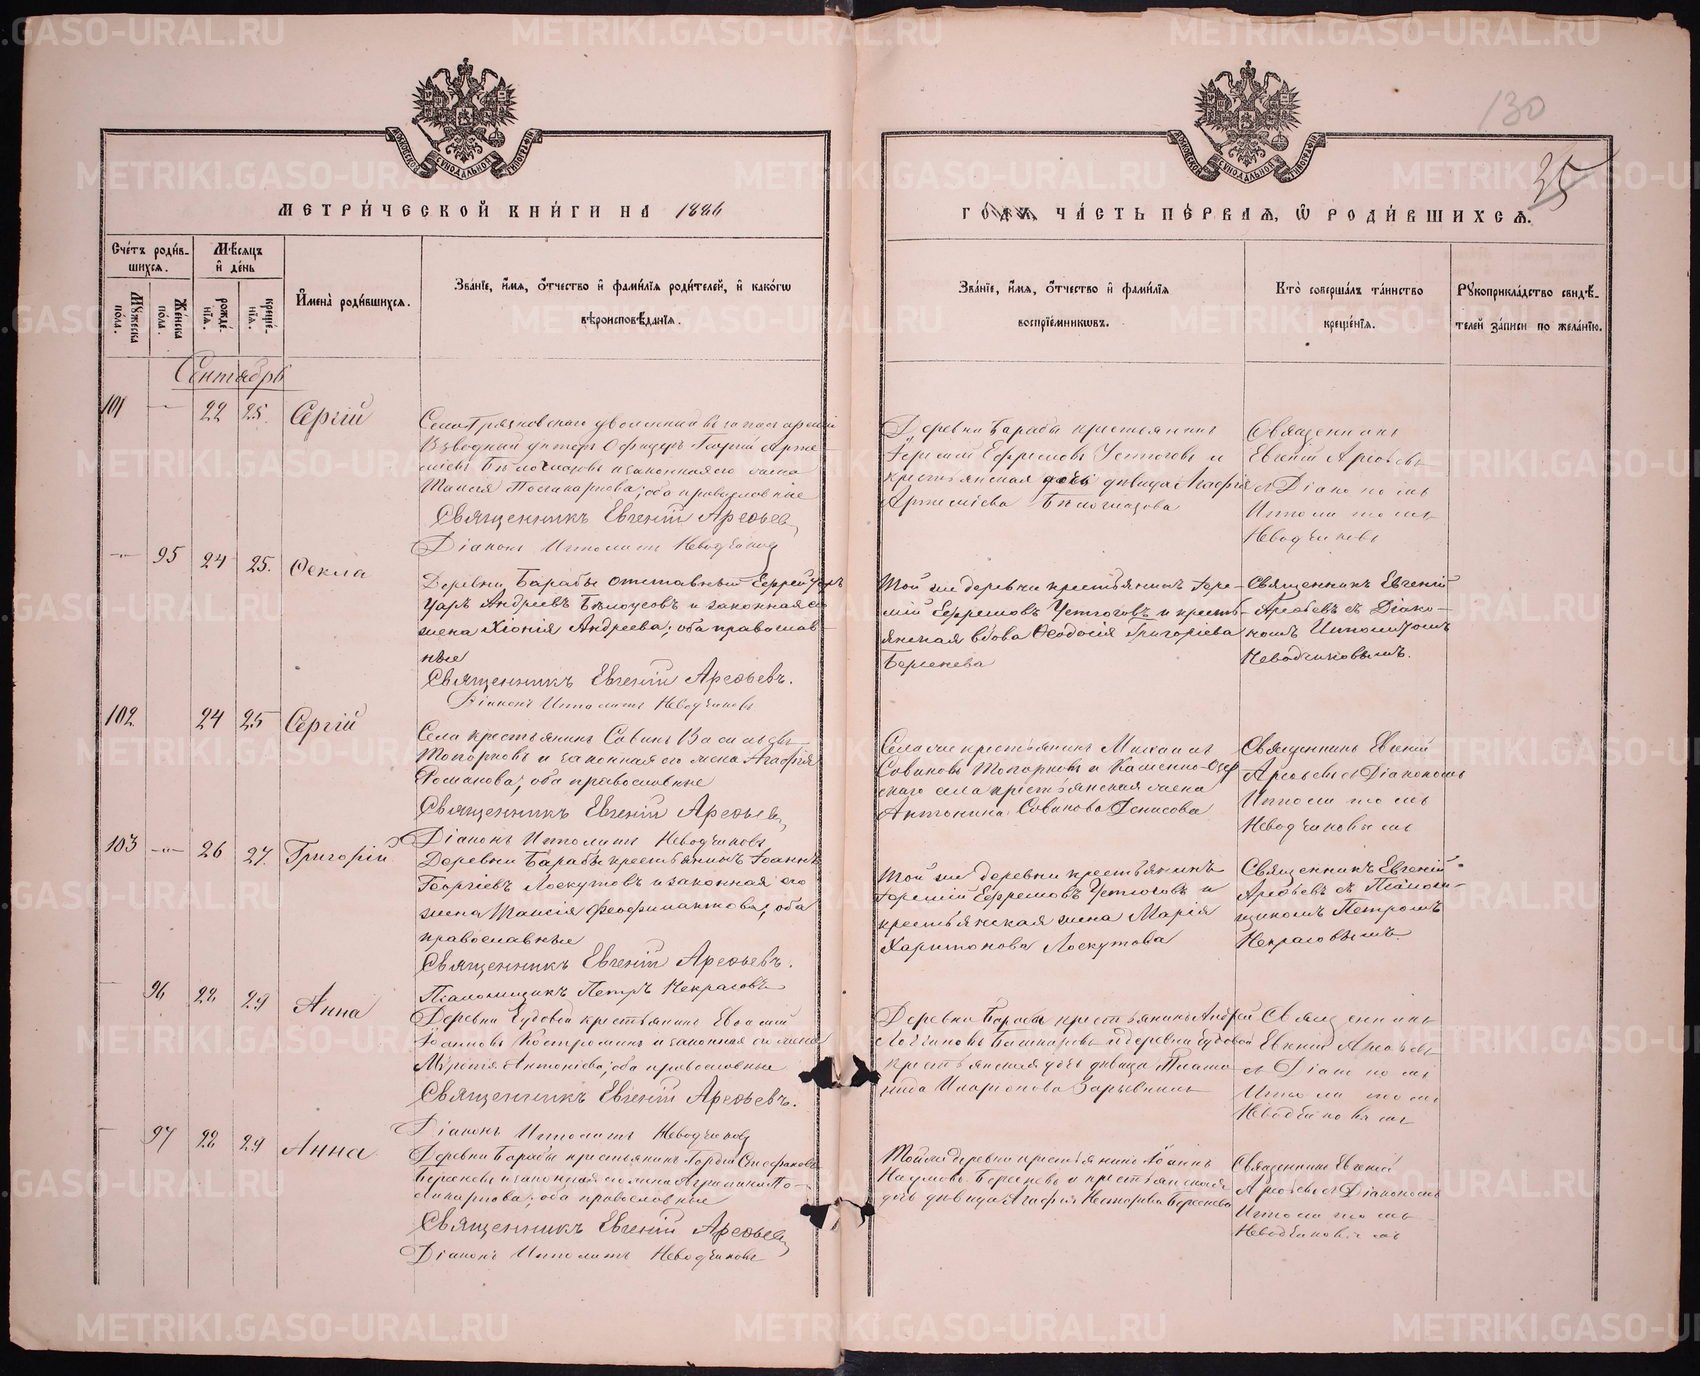 130
35
МЕТРИ́ЧЕСКОЙ КНИ́ГИ НА 1886
ГО́ДЪ, ЧА́СТЬ ПЕ́РВАЯ, Ѡ РОДИ́ВШИХСЯ.
Сче́тъ роди́в-
шихся.
Мѣ́сяцъ
и҆ де́нь
Мꙋжеска пола.
Же́нска по́ла.
рожде́-
нїя.
креще́-
нїя.
И҆мена̀ роди́вшихся.
Зва́нїе, и҆мя, ѻ҆́тчество и҆ фами́лїя роди́телей, и҆ како́гѡ
вѣроисповѣ́данїя.
Зва́нїе, и҆мя, ѻ҆́тчество и҆ фами́лїя
воспрїе́мникѡвъ.
Кто̀ соверша́лъ та́инство
креще́нїя.
Рꙋкоприкла́дство свидѣ́-
телей за́писи по жела́нїю.
Сентябрь
101 22 25. Сергій
Взводный унтеръ Офицеръ Георгій Арте-
міевъ Бѣлоглазовъ и законная его жена
Таисія Поликарпова; оба православные
Священникъ Евгеній Арефьевъ
Діаконъ Ипполитъ Неводчиковъ
Деревни Барабы крестьянинъ
Еремѣй Ефремовъ Устюговъ и
крестьянская дочь дѣвица Агафія
Артеміева Бѣлоглазова
Священникъ
Евгеній Арефьевъ
съ Діакономъ
Ипполитомъ
95 24 25. Ѳекла
Деревни Барабы отставный
Андреевъ Бѣлоусовъ и законная его
жена Хіонія Андреева; оба православ-
ные
Священникъ Евгеній Арефьевъ.
Діаконъ Ипполитъ Неводчиковъ
Той же деревни крестьянинъ Іере-
мій Ефремовъ Устюговъ и кресть-
янская вдова Ѳеодосія Григоріева
Берсенева
Священникъ Евгеній
Арефьевъ съ Діако-
номъ Ипполитомъ
Неводчиковымъ.
102 24 25 Сергій
Села крестьянинъ Савинъ Васильевъ
Топорковъ и законная его жена Агафія
Романова; оба православные
Священникъ Евгеній Арефьевъ
Діаконъ Ипполитъ Неводчиковъ
Села же крестьянинъ Михаилъ
Савиновъ Топорковъ и Каменно-Озер
скаго села крестьянская жена
Антонина Савинова Денисова
Священникъ Евгеній
Арефьевъ съ Діакономъ
Ипполитомъ
Неводчиковымъ
103 26 27. Григорій
Деревни Барабы крестьянинъ Іоаннъ
Георгіевъ Лоскутовъ и законная его
жена Таисія Феофилактова; оба
православные
Священникъ Евгеній Арефьевъ.
Псаломщикъ Петръ Некрасовъ
Той же деревни крестьянинъ
Іеремій Ефремовъ Устюговъ и
крестьянская жена Марія
Харитонова Лоскутова
Священникъ Евгеній
Арефьевъ съ Псалом-
щикомъ Петромъ
Некрасовымъ
96 22 29 Анна
крестьянинъ
Іоанновъ Костроминъ и законная его жена
Антоніева; оба православные
Священникъ Евгеній Арефьевъ.
Діаконъ Ипполитъ Неводчиковъ
Деревни Барабы крестьянинъ Андрей
крестьянская дочь дѣвица
Иларіонова
Священникъ
Евгеній Арефьевъ
съ Діакономъ
Ипполитомъ
Неводчиковымъ
97 22 29 Анна
Деревни Барабы крестьянинъ Гордій Стефановъ
Берсеневъ и законная его жена Агрипина По-
ликарпова; оба православные
Священникъ Евгеній Арефьевъ
Діаконъ Ипполитъ Неводчиковъ
Той же деревни крестьянинъ Іоаннъ
Наумовъ Берсеневъ и крестьянская
дочь дѣвица Агафія Нестерова Берсенева
Священникъ Евгеній
Арефьевъ съ Діакономъ
Ипполитомъ
Неводчиковымъ
METRIKI.GASO-URAL.RU